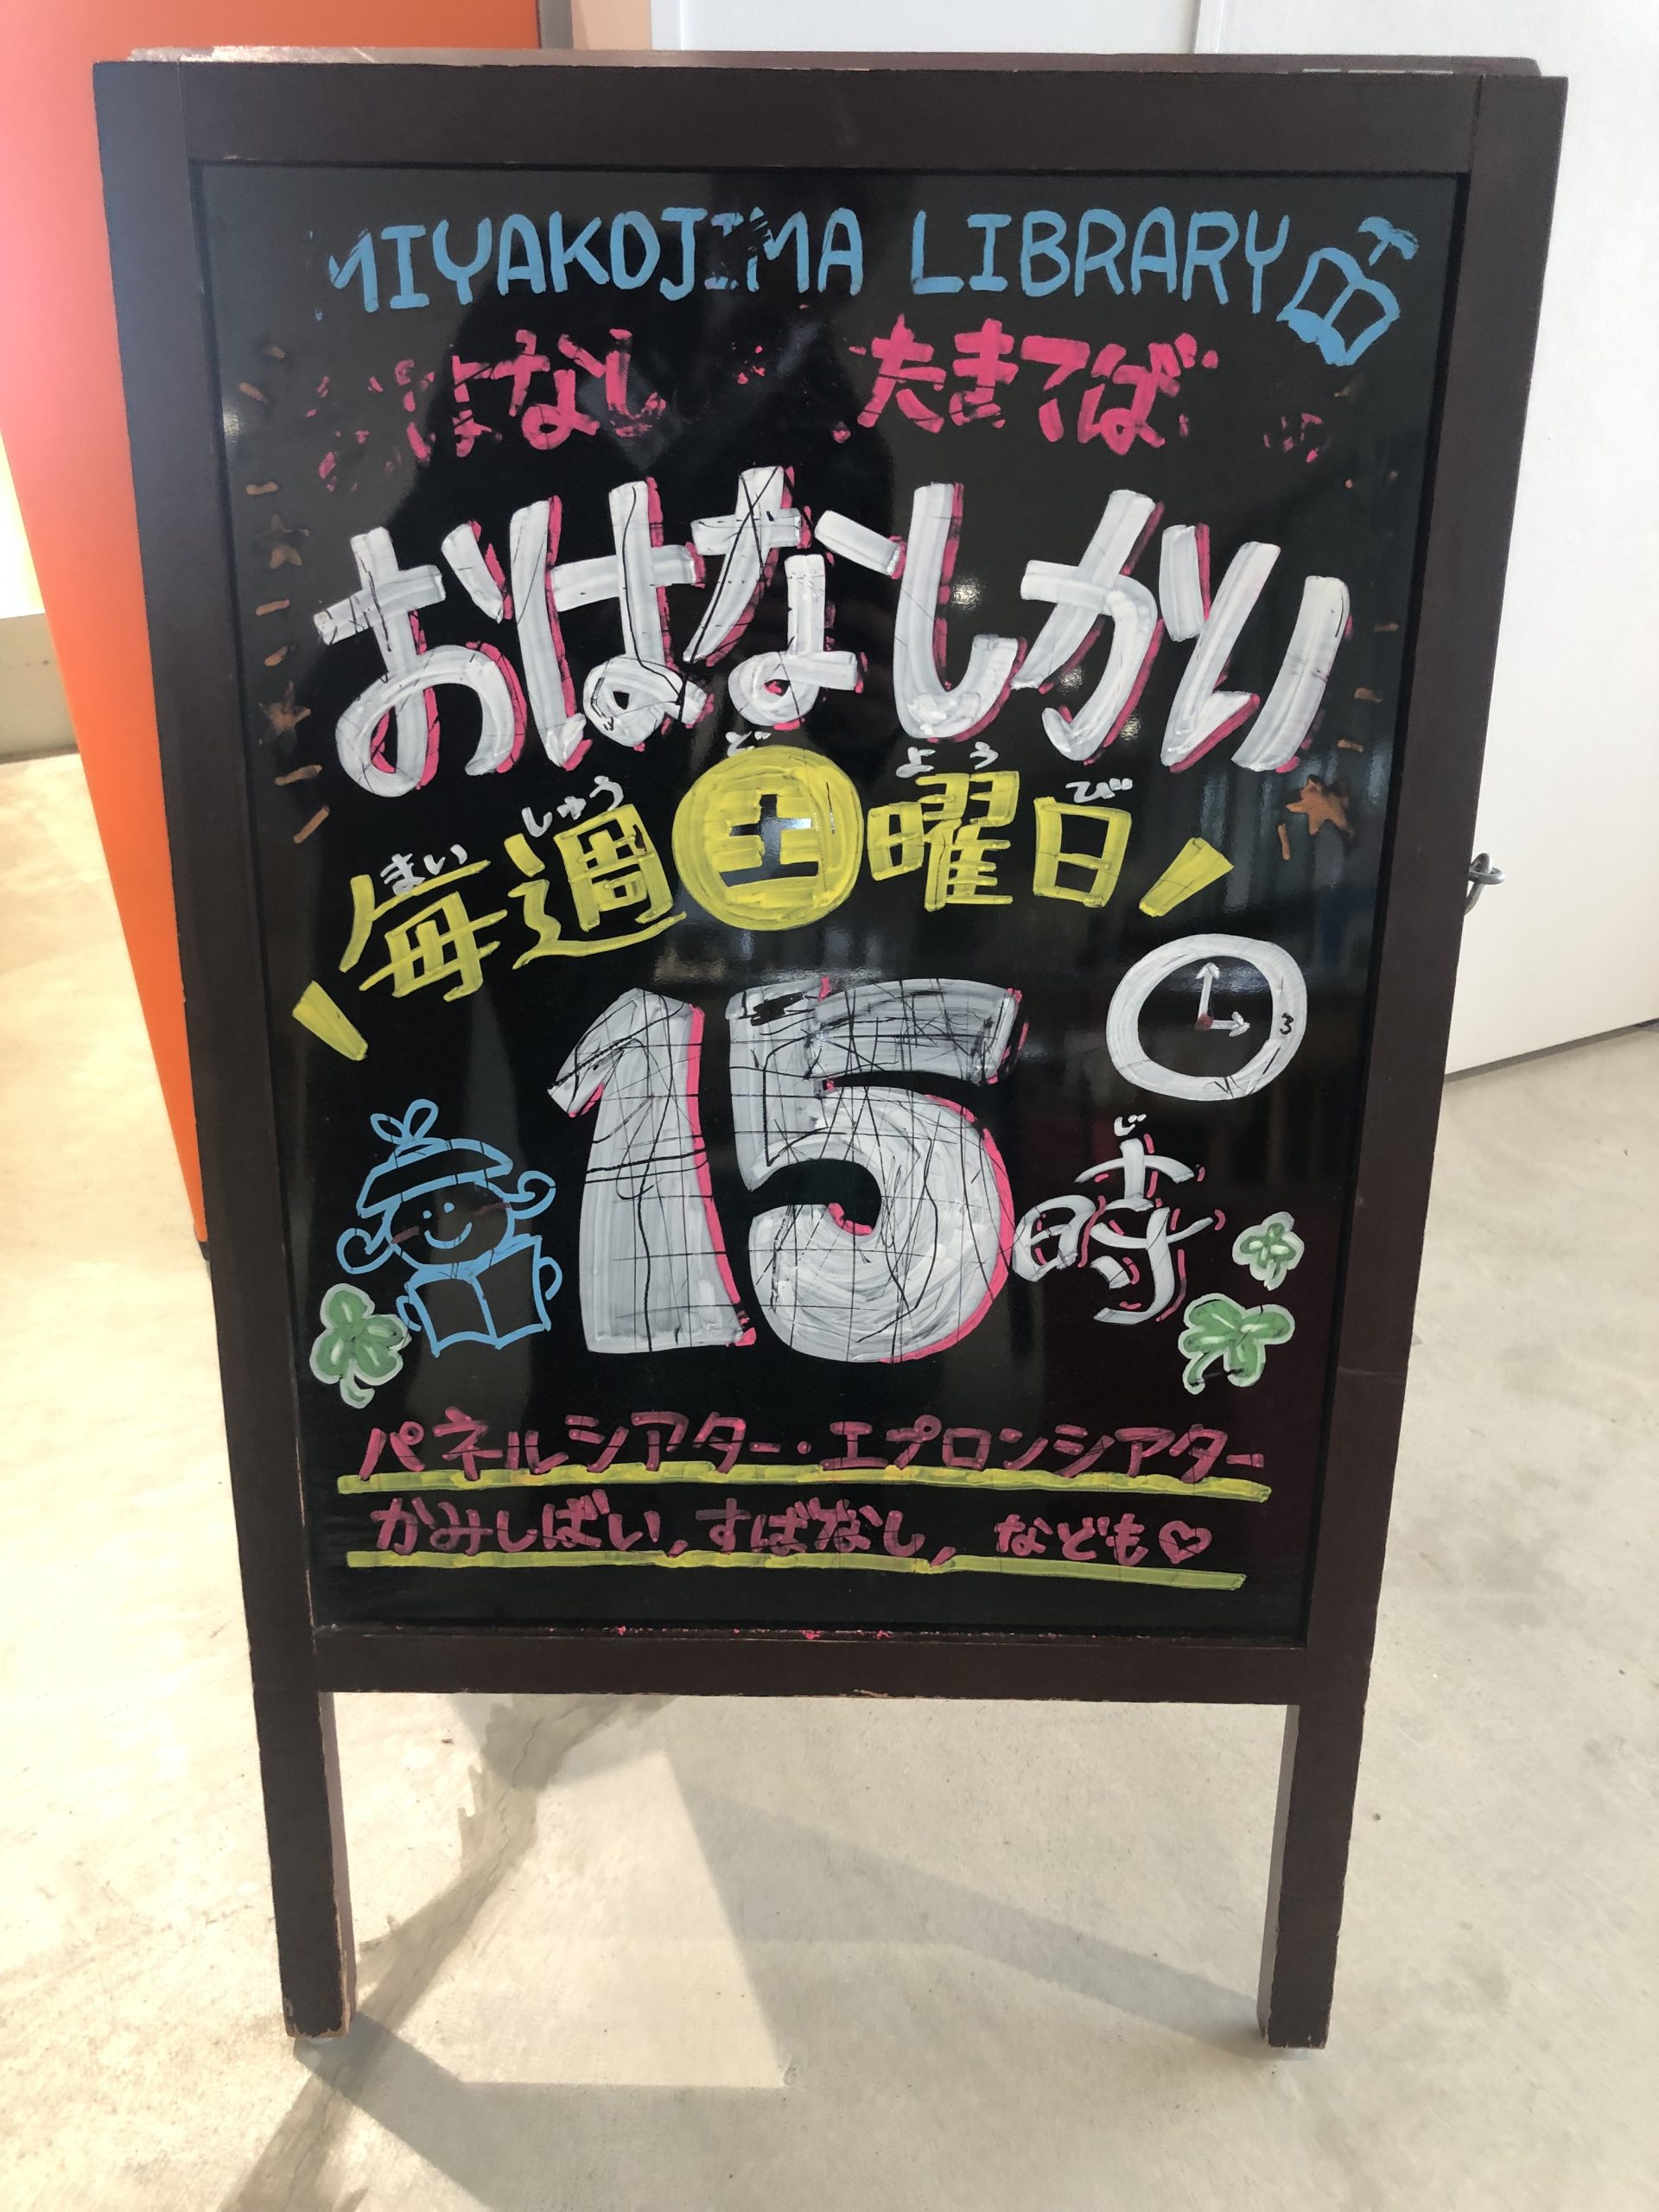 MIYAKOJIMA LIBRARY
はなし たきてば
おはなしかい
まいしゅうどようび
毎週土曜日
3
じ
15時
パネルシアター・エプロンシアター
かみしばい, すばなし, なども♡